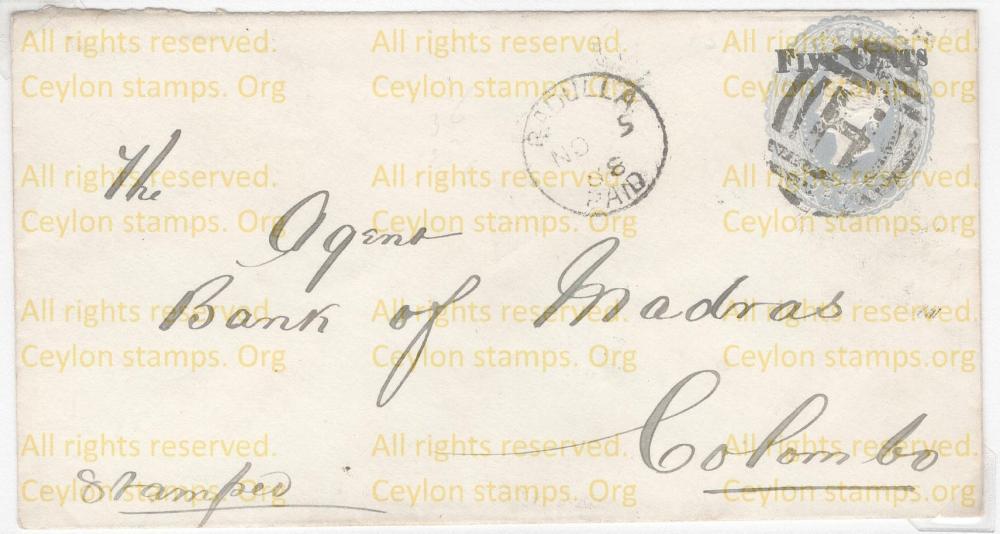 All rights reserved. All rights reserved. All rights reserved.
Ceylon stamps. Org Ceylon stamps. Org Ceylon stamps. Org
FIVE CENTS
BADULLA
5
NO
PAID
The
All rights reserved. All rights reserved. All rights reserved.
Ceylon stamps. Org Ceylon stamps. Org Ceylon stamps. Org
Agent
Bank of Madras
All rights reserved. All rights reserved. All rights reserved.
Ceylon stamps. Org Ceylon stamps. Org Ceylon stamps. Org
Colombo
All rights reserved. All rights reserved. All rights reserved.
Stamped
Ceylon stamps. Org Ceylon stamps. Org Ceylon stamps. Org